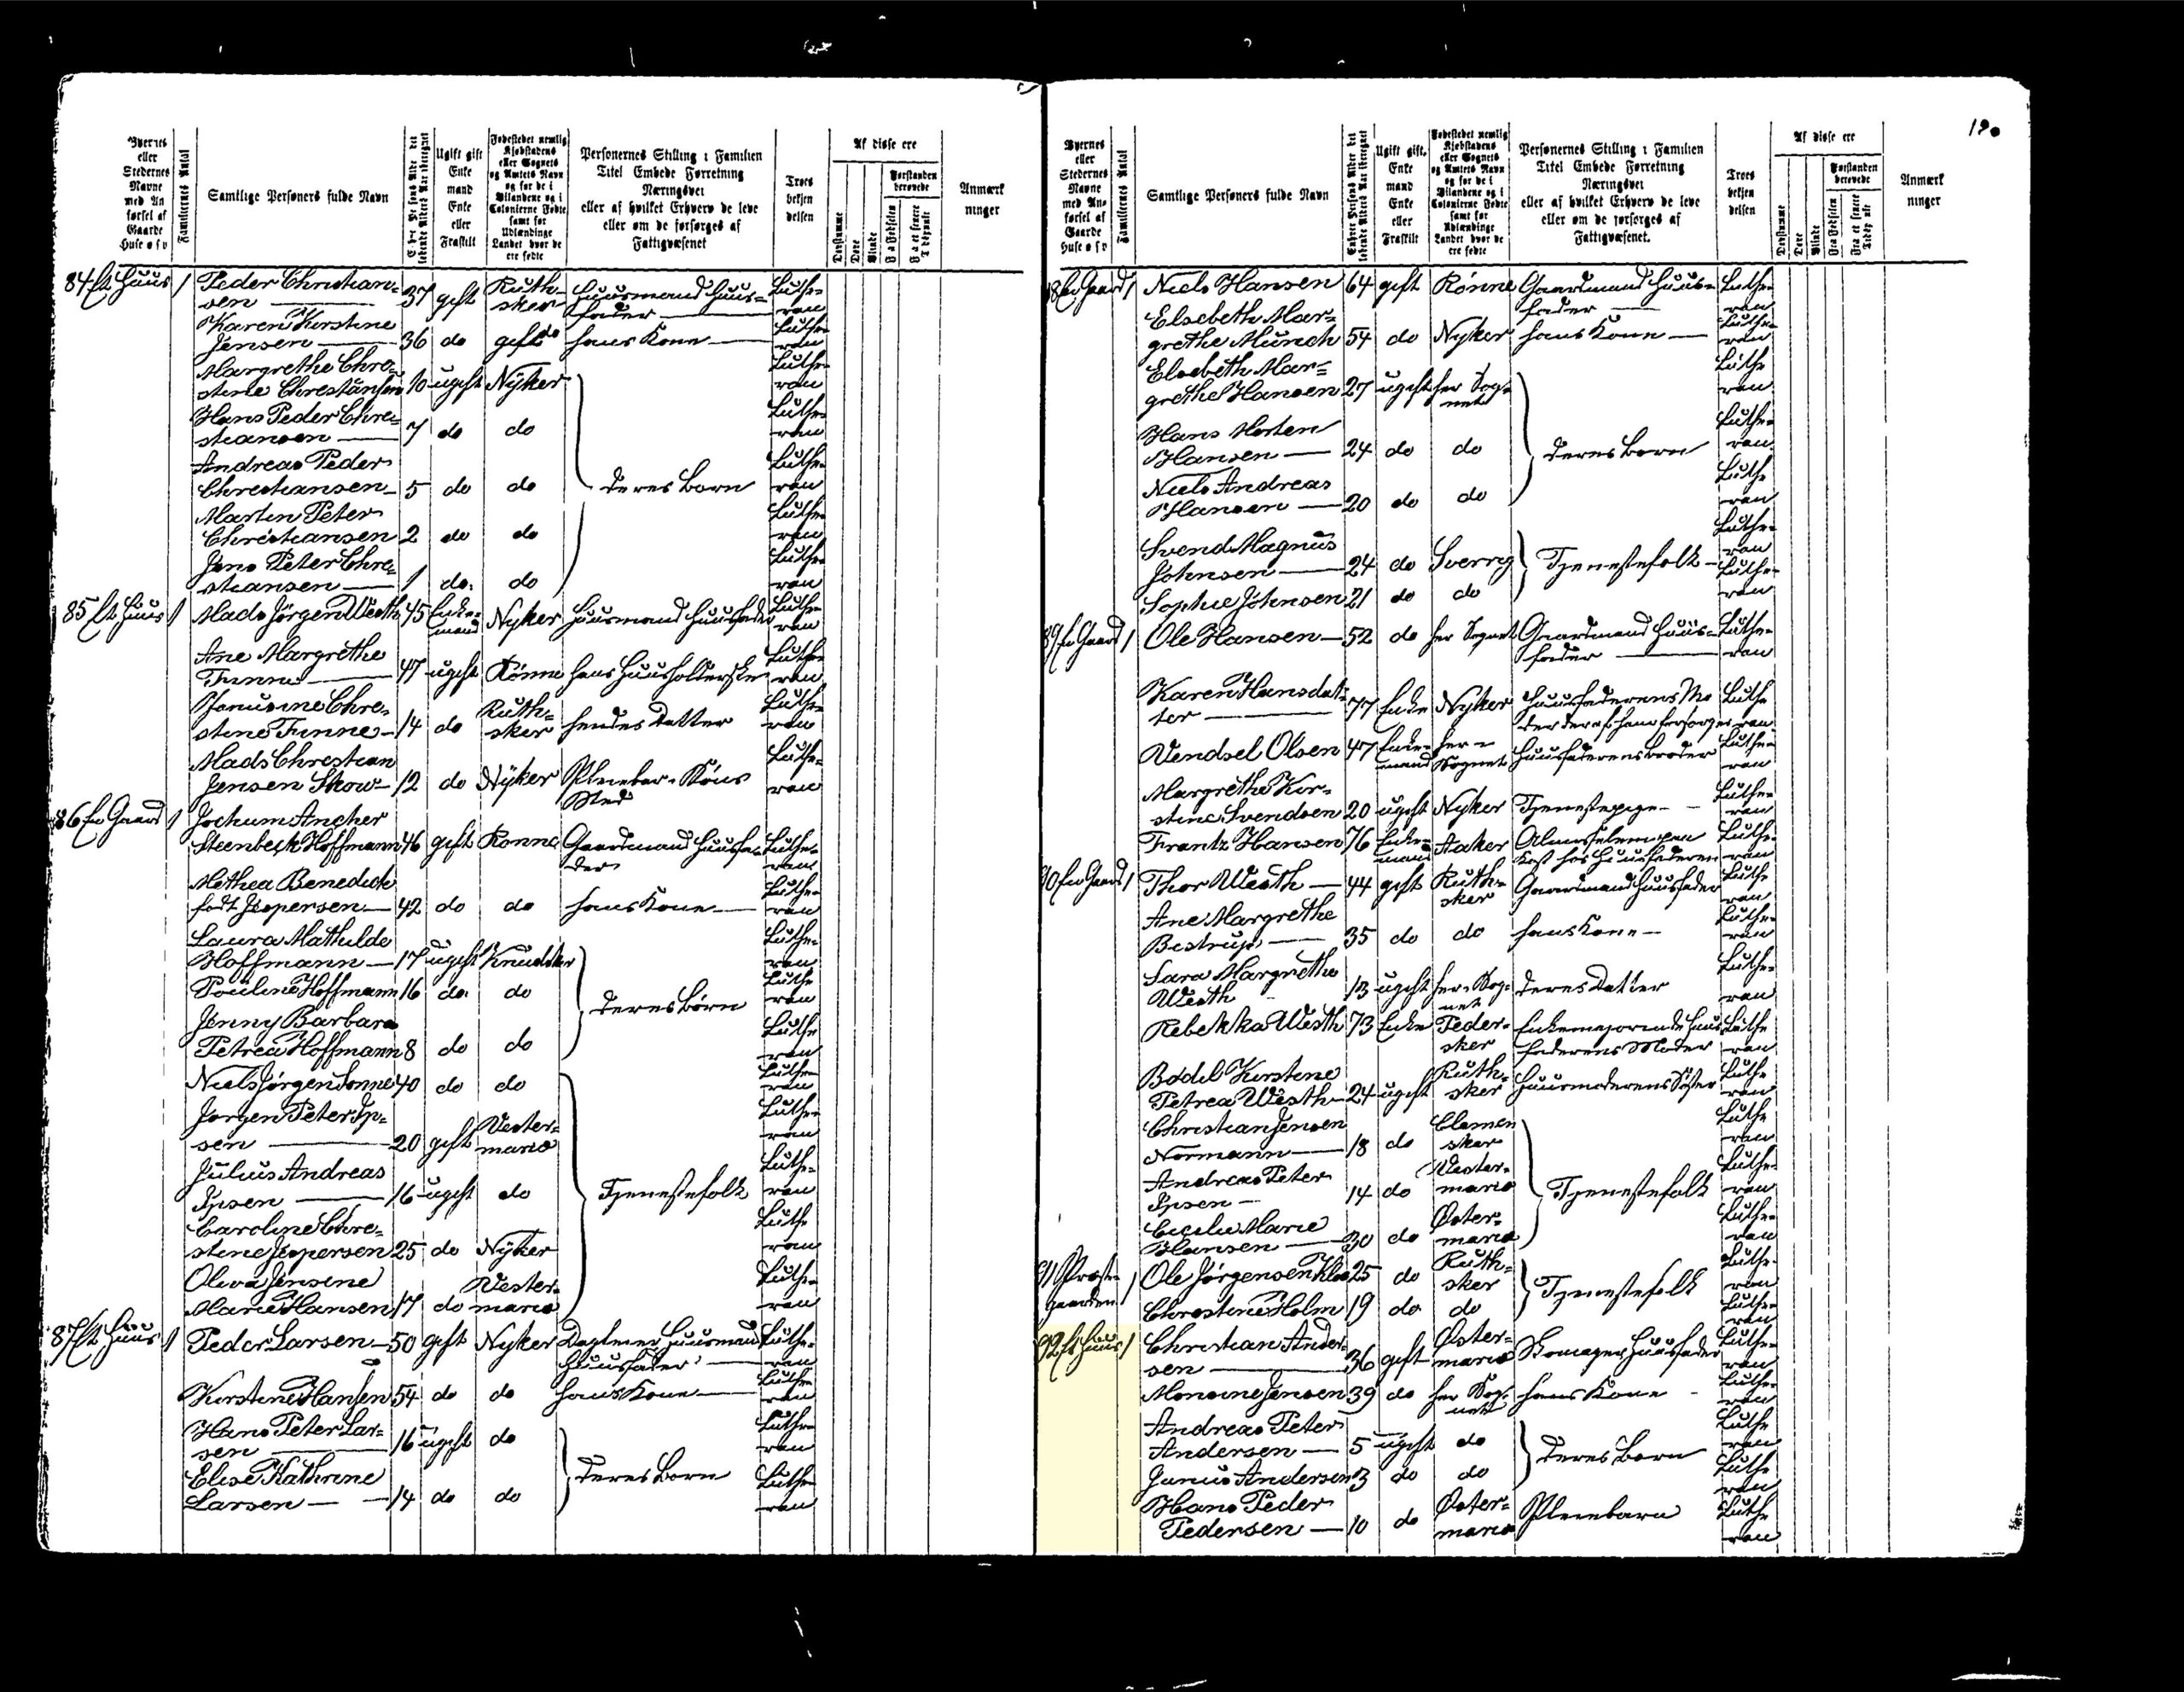 190
Byernes eller Stedernes Navne med Anførsel af Gaarde Huse o s v
Familiernes Antal
Samtlige Personers fulde Navn
Ugift gift Enkemand Enke eller Fraskilt
Fødestedet nemlig Kjøbstadens eller Sognets og Amtets Navn og for de i Bilandene og i Colonierne Fødte samt for Udlændinge Landet hvor de ere fødte
Personernes Stilling i Familien Titel Embede Forretning Næringsvei eller af hvilket Erhverv de leve eller om de forsørges af Fattigvæsenet
Troes bekjen delsen
Af disse ere
Døvstumme
Døve
Blinde
Forstanden berøvede
Anmærkninger
84 Huus 1 Peder Christian=
sen 37 gift Ruth=sker Huusmand Huus=fader Luthe=ran
Karen Kirstine
Jensen 36 do do hans Kone Luthe=ran
Margrethe Chre=
stine Chrestansen 10 ugift Nÿker Luthe=ran
Hans Peder Chre=
stiansen 7 do do Luthe=ran
Andreas Peder
Chrestiansen 5 do do deres Børn Luthe=ran
Marten Peter
Christiansen 2 do do Luthe=ran
Jens Peter Chre=
stiansen 1 do. do Luthe=ran
85 Huus 1 Mads Jörgen Westh 45 Enke=mand Nyker Huusmand Huusfader Luthe=ran
Ane Margrethe
47 ugift Rönne hans Huusholderske Luthe=ran
Chre=
stine 14 do Ruth=sker hendes Datter Luthe=ran
Mads Chrestian
Jensen Skow 12 do Nÿker Luthe=ran
86 Gaard 1 Jochum Ancher
Steenbeck Hoffmann 46 gift Rønne Gaardmand Huusfader Luthe=ran
Methea Benedicte
født Jespersen 42 do do hans Kone Luthe=ran
Laura Mathilde
Hoffmann 17 ugift Knudsker Luthe=ran
Pouline Hoffmann 16 do. do deres Børn Luthe=ran
Jenny Barbara
Petrea Hoffmann 8 do do Luthe=ran
Niels Jørgen Sonne 40 do do Luthe=ran
Jørgen Peter Ip=
sen 20 gift Vester=marie Luthe=ran
Julius Andreas
Ipsen 16 ugift do Tjenestefolk Luthe=ran
Caroline Chre=
stine Jespersen 25 do Nÿker Luthe=ran
Oliva Jensine
Marie Hansen 17 do Vester=marie Luthe=ran
87 Huus 1 Peder Larsen 50 gift Nyker Daglejer Huusmand Huusfader Luthe=ran
Kirstine Hansen 54 do do hans Kone Luthe=ran
Hans Peter Lar=
sen 16 ugift do Luthe=ran
Elise Kathrine
Larsen 14 do do deres Børn Luthe=ran
88 Gaard 1 Niels Hansen 64 gift Rønne Gaardmand Huus=fader Luthe=ran
Elsebeth Mar=
grethe Munch 54 do Nyker hans Kone Luthe=ran
Elsebeth Mar=
grethe Hansen 27 ugift her Sog=net Luthe=ran
Hans Morten
Hansen 24 do do deres Børn Luthe=ran
Niels Andreas
Hansen 20 do do Luthe=ran
Svend Magnus
Johnsen 24 do Sverrig Tjenestefolk Luthe=ran
Sophie Johnsen 21 do do Luthe=ran
89 Gaard 1 Ole Hansen 52 do her Sognet Gaardmand Huus=fader Luthe=ran
Karen Hansdat=
ter 77 Enke Nyker Huusfaderens Mo der der af ham forsørges Luthe=ran
Vendsel Olsen 47 Enke=mand her=Sognet Huusfaderens broder Luthe=ran
Margrethe Kir=
stine Svendsen 20 ugift Nyker Tjenestepige Luthe=ran
Frantz Hansen 76 Enke=mand Aaker Kost hos Huusfaderen Luthe=ran
90 Gaard 1 Thor Westh 44 gift Ruth=sker Gaardmand Huusfader Luthe=ran
Ane Margrethe
Bestrup 35 do do hans Kone Luthe=ran
Sara Margrethe
Westh 13 ugift her=Sog=net deres Datter Luthe=ran
Rebekka Westh 73 Enke Peder=sker Huus faderens Moder Luthe=ran
Bodil Kirstine
Petrea Westh 24 ugift Ruth=sker Huusmoderens Söster Luthe=ran
Christian Jensen
Normann 18 do Clemen sker Luthe=ran
Andreas Peter
Ipsen 14 do Vester=marie Tjenestefolk Luthe=ran
Cecilie Marie
Hansen 30 do Øster=marie Luthe=ran
91 Præste=gaarden 1 Ole Jørgensen Kloo 25 do Ruth=sker Tjenestefolk Luthe=ran
Chrestine Holm 19 do do Luthe=ran
92 Huus 1 Christian Ander
sen 36 gift Øster=marie Skomager Huusfader Luthe=ran
Monsine Jensen 39 do her Sog=net hans Kone Luthe=ran
Andreas Peter
Andersen 5 ugift do deres Børn Luthe=ran
Junius Andersen 3 do do Luthe=ran
Hans Peder
Pedersen 10 do Øster=marie Pleiebarn Luthe=ran